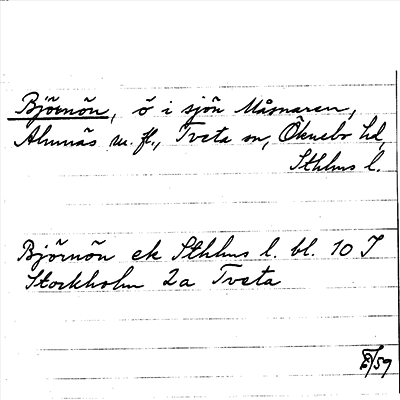 Björnön, ö i sjön Måsnaren,
Almnäs m. fl., Tveta sn, Öknebo hd,
Sthlms l.
Björnön ek Sthlms l. bl. 10 J
Stockholm 2a Tveta
/59